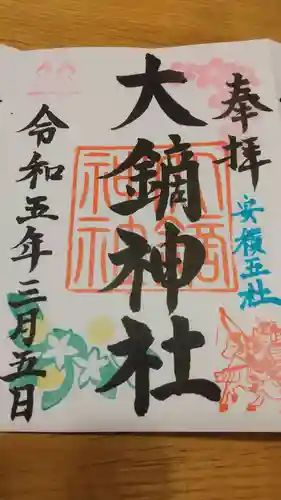 奉拝
安積五社
大鏑神社
令和五年三月五日
大鏑
神社